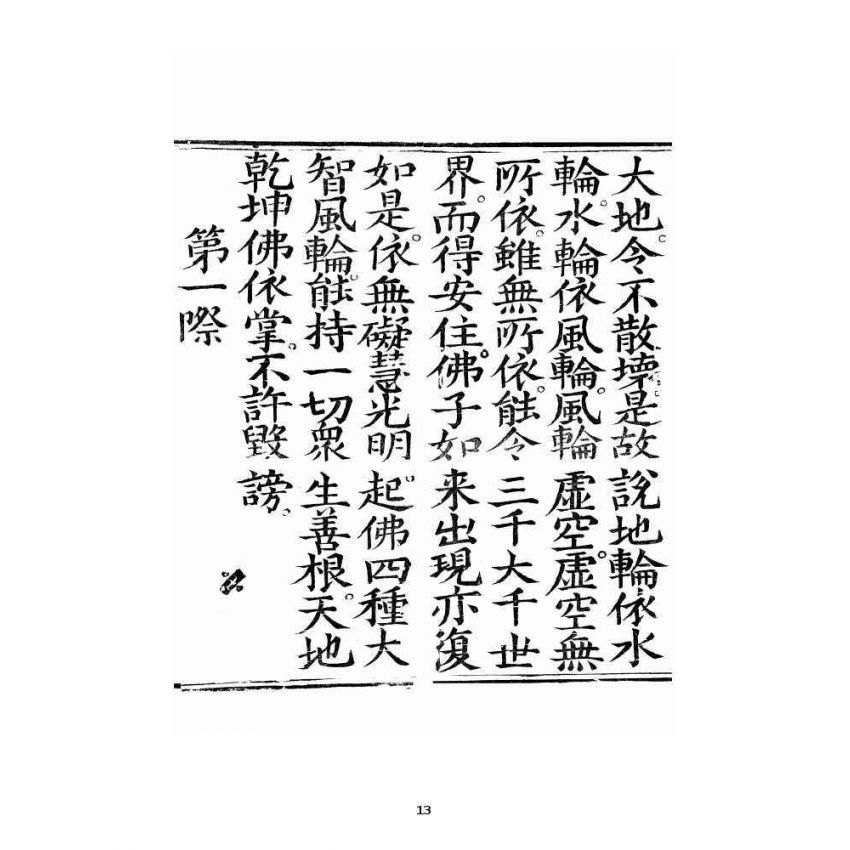 大地。令不散壞。是故說地輪依水
輪。水輪依風輪。風輪依虛空。虛空無
所依。雖無所依。能令三千大千世
界。而得安住。佛子如来出現亦復
如是。依無礙慧光明起。佛四種大
智風輪。能持一切衆生善根。天地
乾坤佛依掌。不許毀謗。
第一際
13